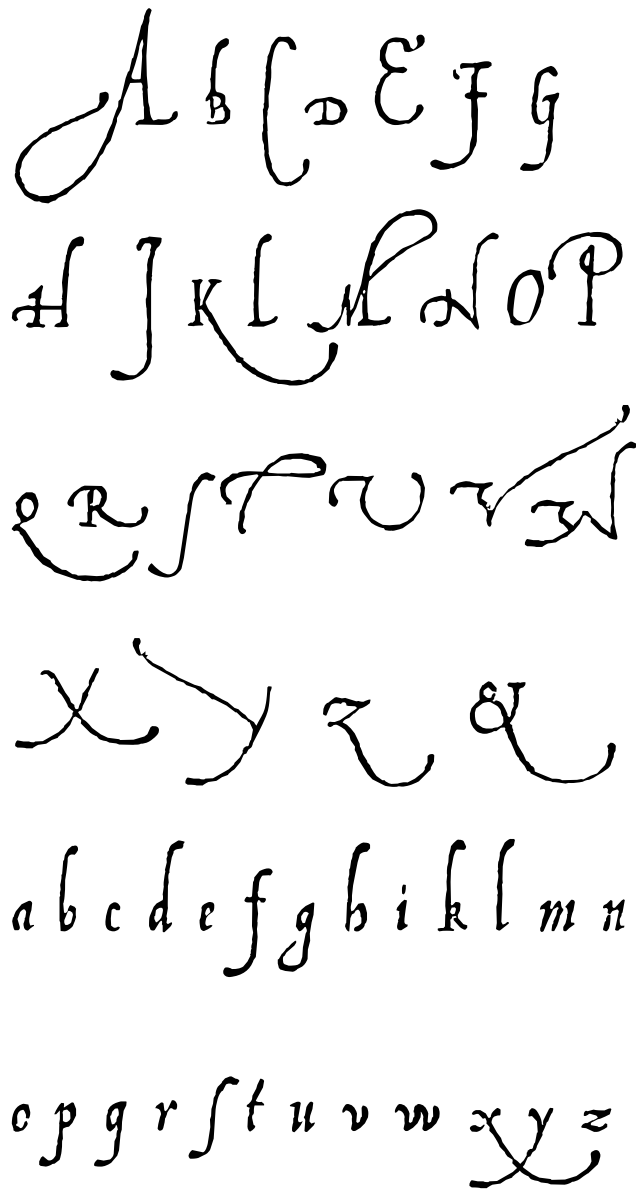 A B C D E F G
H J K L M N O P
Q R S T U V W
X Y Z &
a b c d e f g h i k l m n
o p q r ſ t u v w x y z